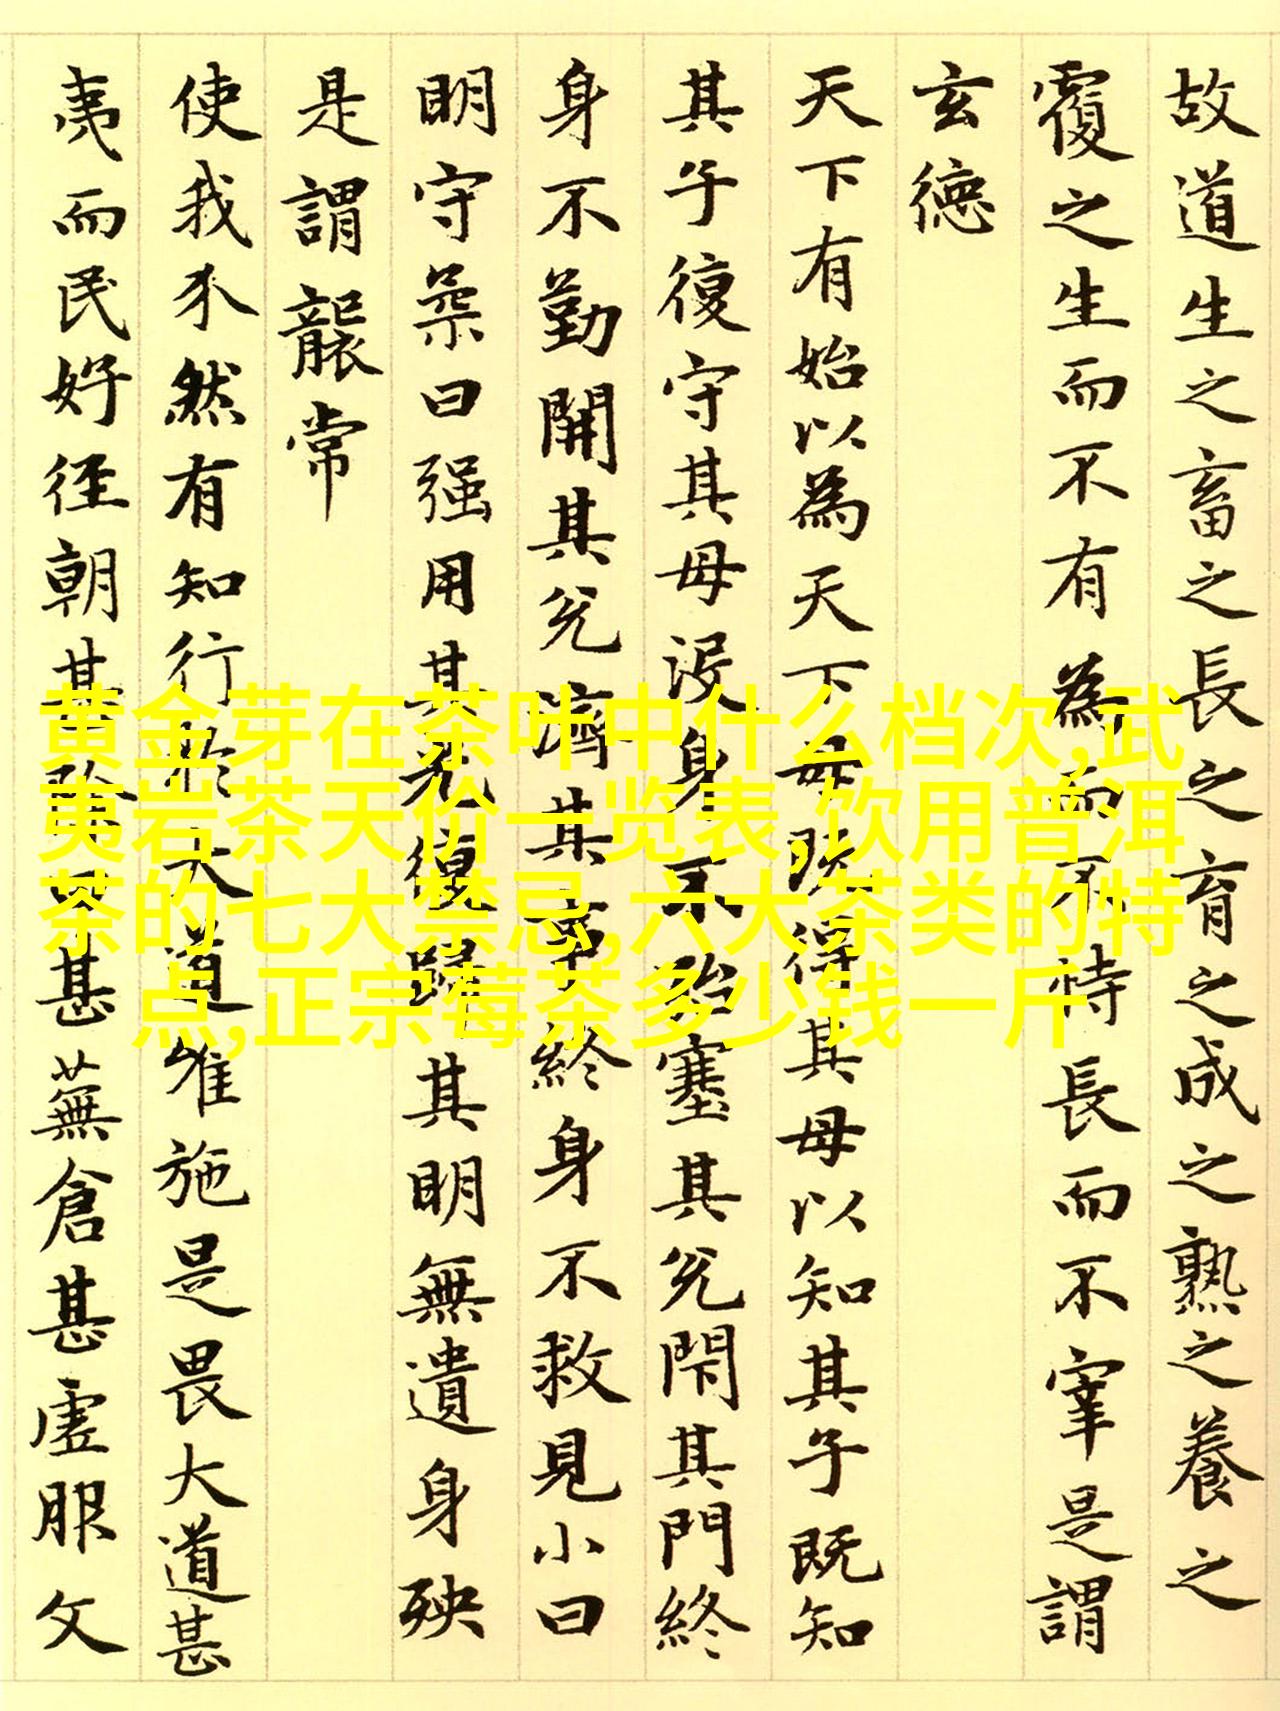 故道生之畜之長之育之成之熟之養之
覆之生而不有為而不恃長而不宰是謂
玄德
天下有始以為天下母既得其母以知其子既知
其子復守其母没身不殆塞其兊閇其門終
身不勤開其兊濟其事終身不救見小曰
明守柔曰强用其光復歸其明無遺身殃
是謂襲常
使我介然有知行於大道唯施是畏大道甚
夷而民好徑朝甚除田甚蕪倉甚虛服文
黄金芽在茶叶中什么档次,武
夷岩茶天价一览表,饮用普洱
茶的七大禁忌,六大茶类的特
点,正宗莓茶多少钱一斤